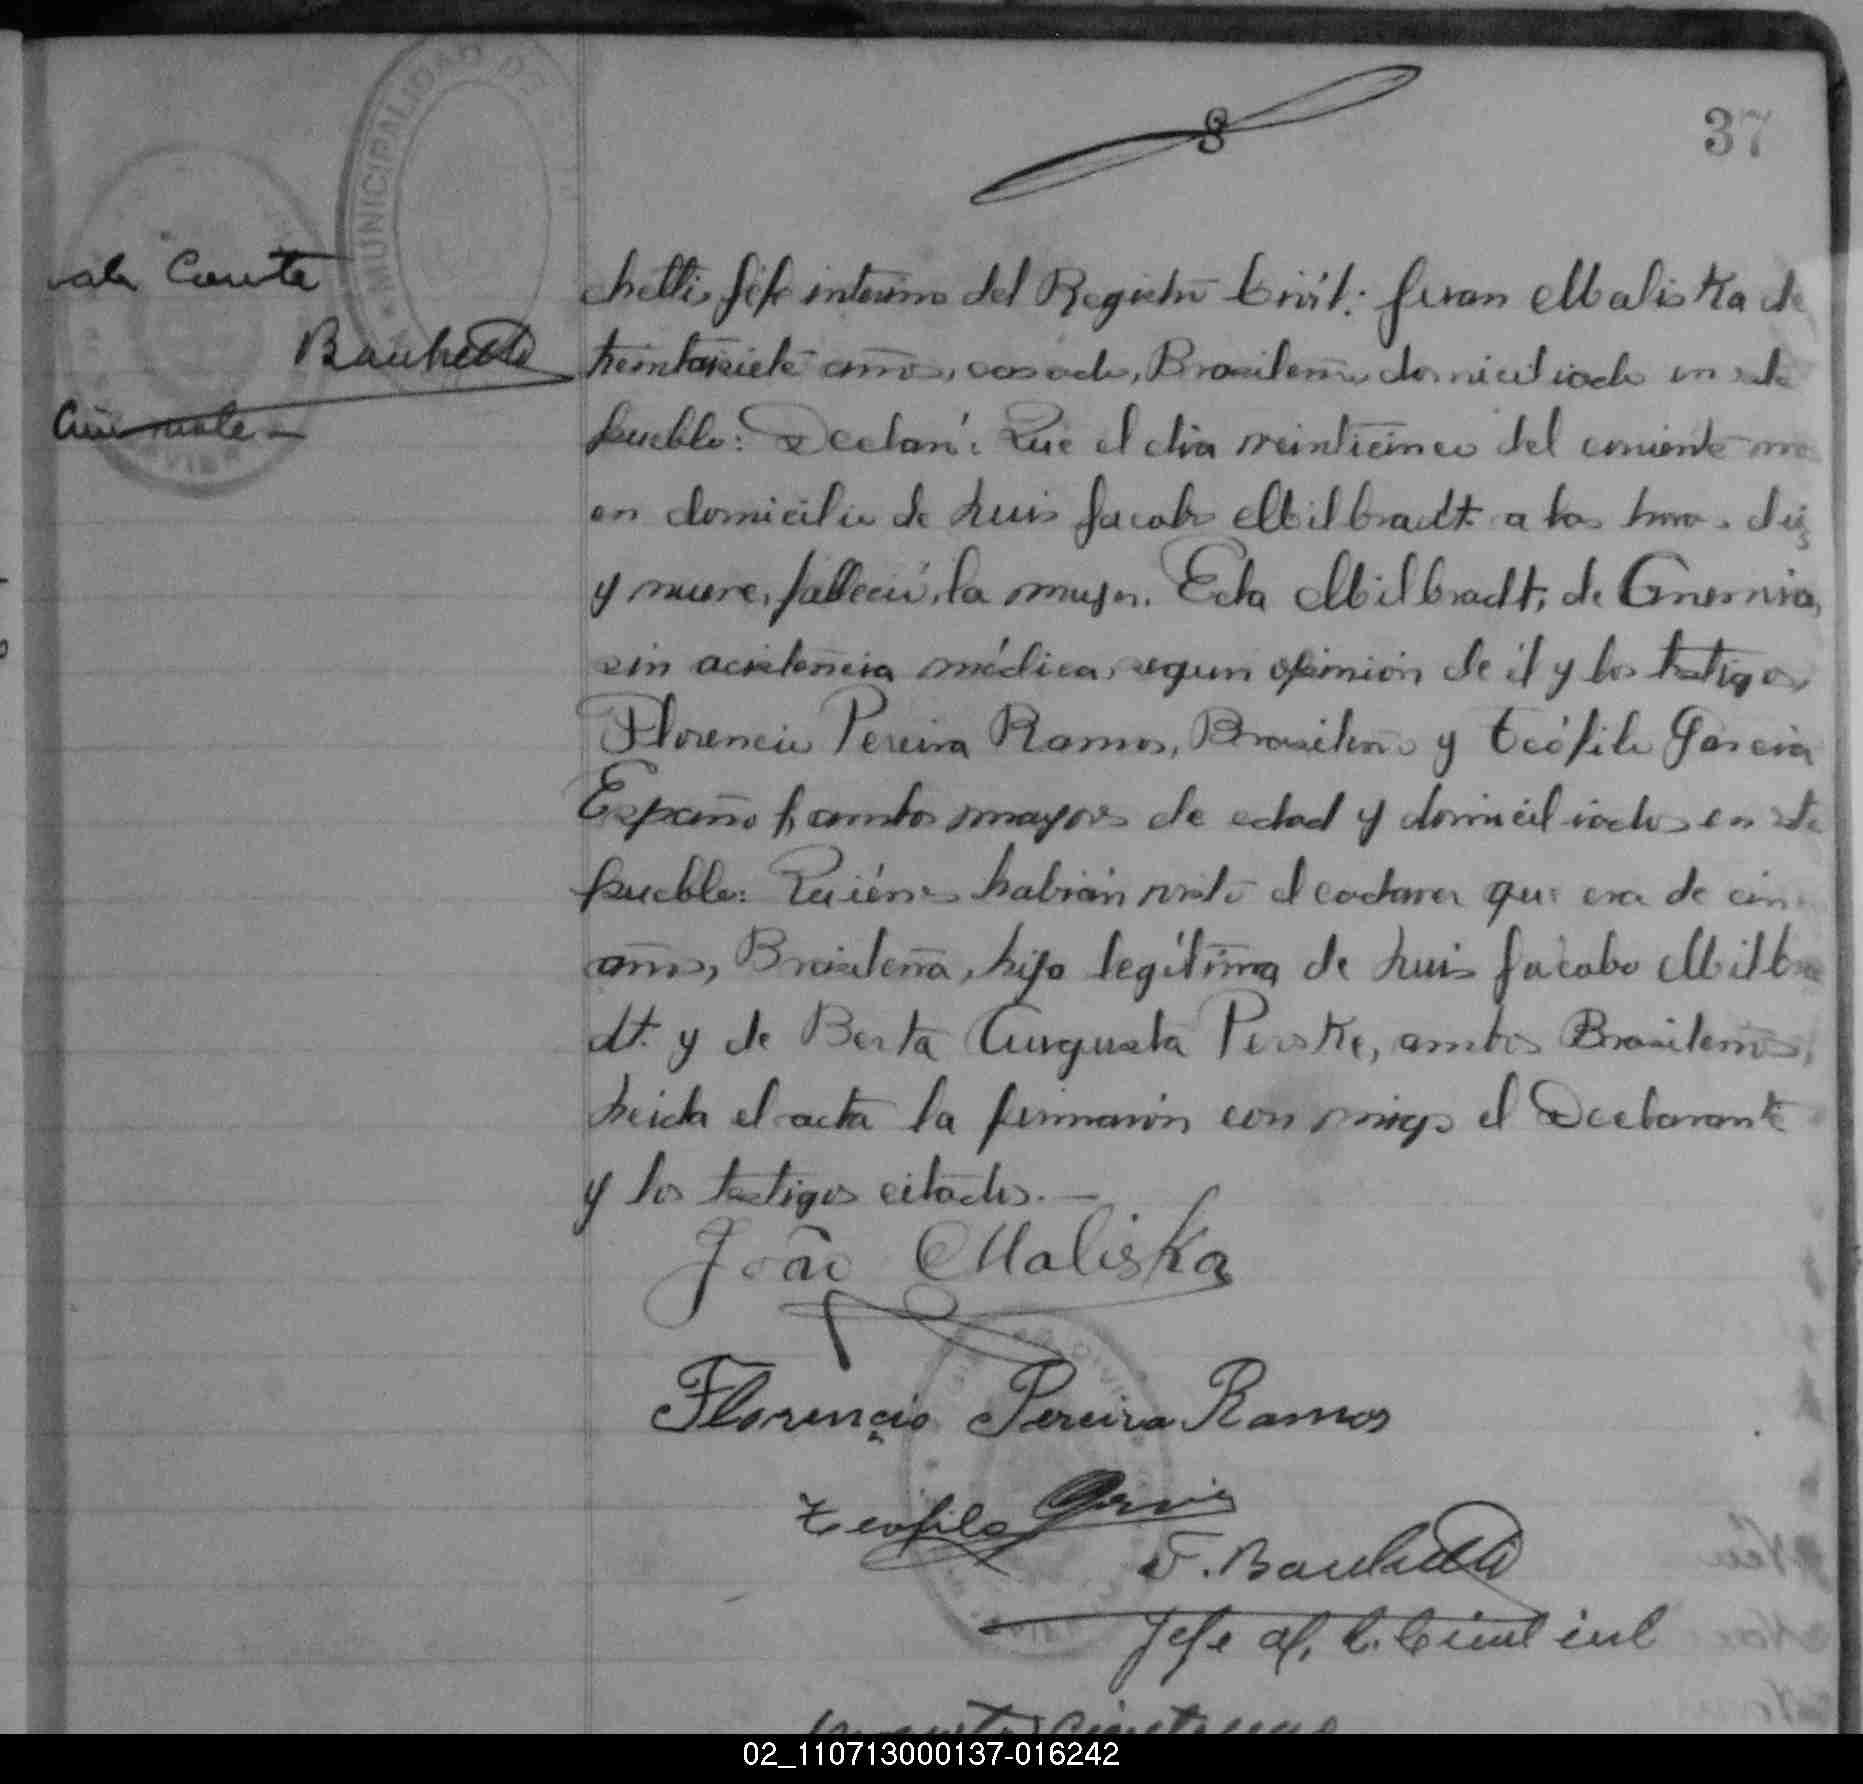 8
37
MUNICIPALIDAD DE
vale Conste
Bauchetti
chetti, Jefe interino del Registro Civil: Juan Maliska de
treintaisiete años, casado, Brasileño, domiciliado en este
pueblo: Declaró: Que el dia veinticinco del corriente mes
en domicilio de Luis Jacobo Milbradt a las horas diez
y nueve, falleció, la mujer. Eda Milbradt, de
sin asistencia médica, segun opinión de él y los testigos
Florencio Pereira Ramos, Brasileño y Teófilo Garcia
Español, ambos mayores de edad y domiciliados en este
pueblo: Quiénes habian visto el cadaver que era de
años, Brasileña, hija legítima de Luis Jacobo Milbra
dt. y de Berta Augusta Perske, ambos Brasileños,
Leida el acta la firmarón con migo el Declarante
y los testigos citados. —
João Maliska
Florencio Pereira Ramos
Teofilo Garcia
F. Bauchetti
Jefe del R. Civil int
02_110713000137-016242